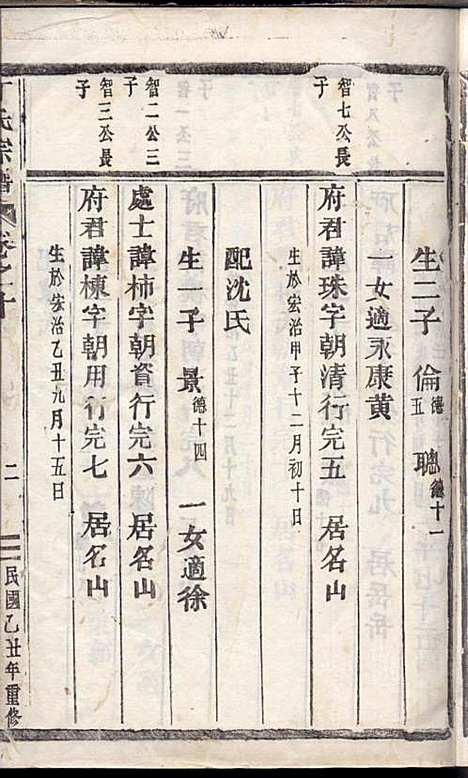 生二子 倫德五 聰德十一
一女適永康黄
智七公長子
府君諱珠字朝清行完五 居名山
生於宏治甲子十二月初十日
配沈氏
生一子 景德十四 一女適徐
智二公三子
處士諱柿字朝資行完六 居名山
智三公長子
府君諱棟字朝用行完七 居名山
生於宏治乙丑九月十五日
氏宗譜 卷之十 二 民國乙丑年重修